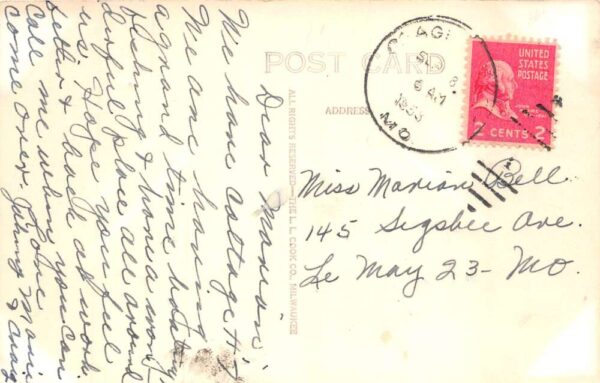 POST CARD
ADDRESS
ALL RIGHTS RESERVED—THE L. L. COOK CO., MILWAUKEE
OSAGE
8
6 AM
1953
MO.
UNITED
STATES
POSTAGE
2 CENTS 2
Miss Marion Bell
145 Sigsbee Ave.
Le May 23 - Mo.
Dear Marion,
We have cottage #4
We are having
a grand time boating,
fishing & have a won-
derful place all around
us. Hope you feel
better & back at work.
Call me when you can
come over. Love
Jimmy & Craig